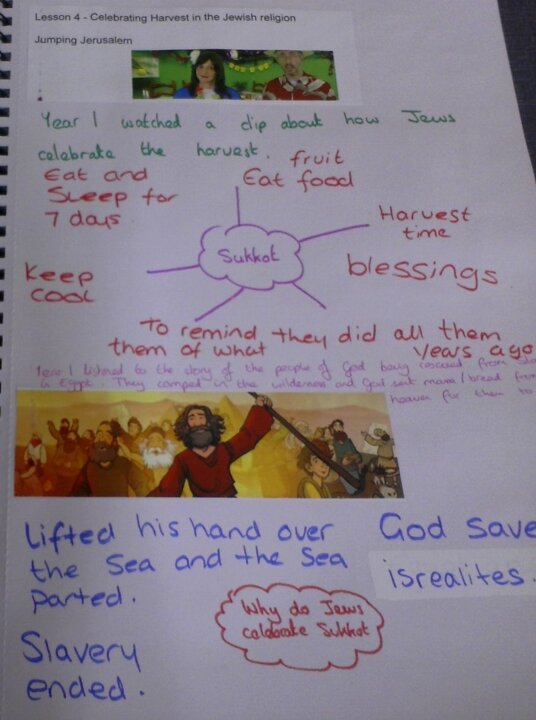 Lesson 4 - Celebrating Harvest in the Jewish religion
Jumping Jerusalem
Year 1 watched a clip about how Jews
celebrate the harvest.
Eat and
Sleep for
7 days
fruit
Eat food
Harvest
time
Sukkot
blessings
Keep
cool
To remind
them of what
they did all them
years ago
Year 1 listened to the story of the people of God being rescued from
in Egypt. They camped in the wilderness and God sent mana/bread from
heaven for them to
Lifted his hand over
the Sea and the Sea
parted.
God save
isrealites.
Why do Jews
celebrate Sukkot
Slavery
ended.